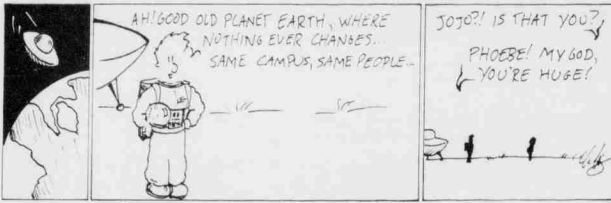 AH! GOOD OLD PLANET EARTH, WHERE
NOTHING EVER CHANGES...
SAME CAMPUS, SAME PEOPLE...
JOJO?! IS THAT YOU?
PHOEBE! MY GOD,
YOU'RE HUGE!